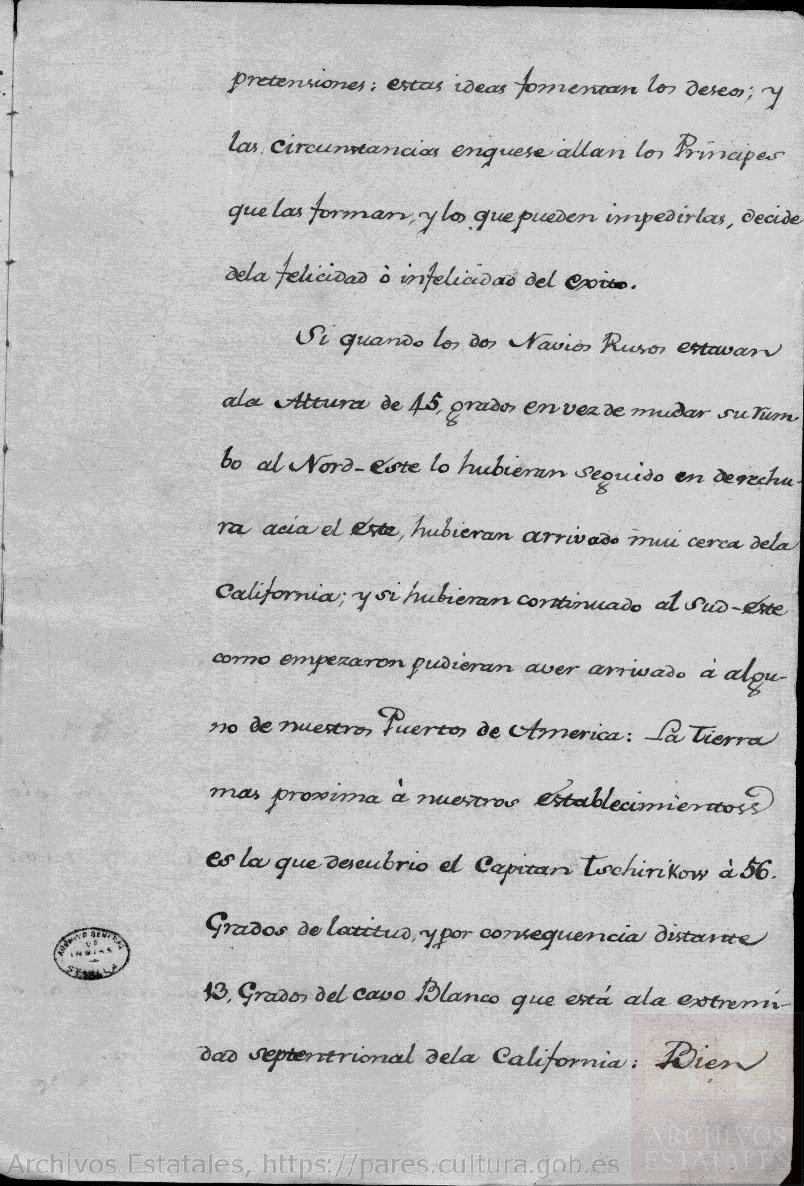 pretensiones: estas ideas fomentan los deseos; y
las circunstancias enquese allan los Principes
que las forman, y los que pueden impedirlas, decide
dela felicidad ò infelicidad del exito.
Si quando los dos Navios Rusos estavan
ala Altura de 45, grados en vez de mudar su rum-
bo al Nord-este lo hubieran seguido en derechu-
ra acia el este, hubieran arrivado mui cerca dela
California; y si hubieran continuado al Sud-este
como empezaron pudieran aver arrivado á algu-
no de nuestros Puertos de America: La Tierra
mas proxima à nuestros establecimientos
es la que descubrio el Capitan Tschirikow à 56.
Grados de latitud, y por consequencia distante
13, Grados del cavo Blanco que está ala extremi-
dad septentrional dela California: Bien
ARCHIVO GENERAL
DE
INDIAS
SEVILLA
ARCHIVOS
ESTATALES
Archivos Estatales, https://pares.cultura.gob.es